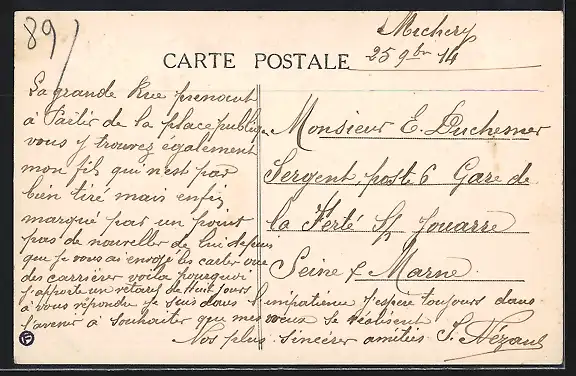 89
CARTE POSTALE
Michery
25 9bre 14
La grande Rue prenant
à Partir de la place publique
vous y trouvez également
mon fils qui n'est pas
bien tiré mais enfin
marqué par un point
pas de nouvelles de lui depuis
que je vous ai envoyé les cartes vue
des carrières voilà pourquoi
j'apporte un retard de Huit jours
à vous répondre je suis dans l'impatience j'espère toujours dans
l'avenir à souhaiter que mes vœux se réalisent
Nos plus sincères amitiés
Monsieur E. Duchemer
Sergent, poste 6 Gare de
la Ferté s/s Jouarre
Seine & Marne